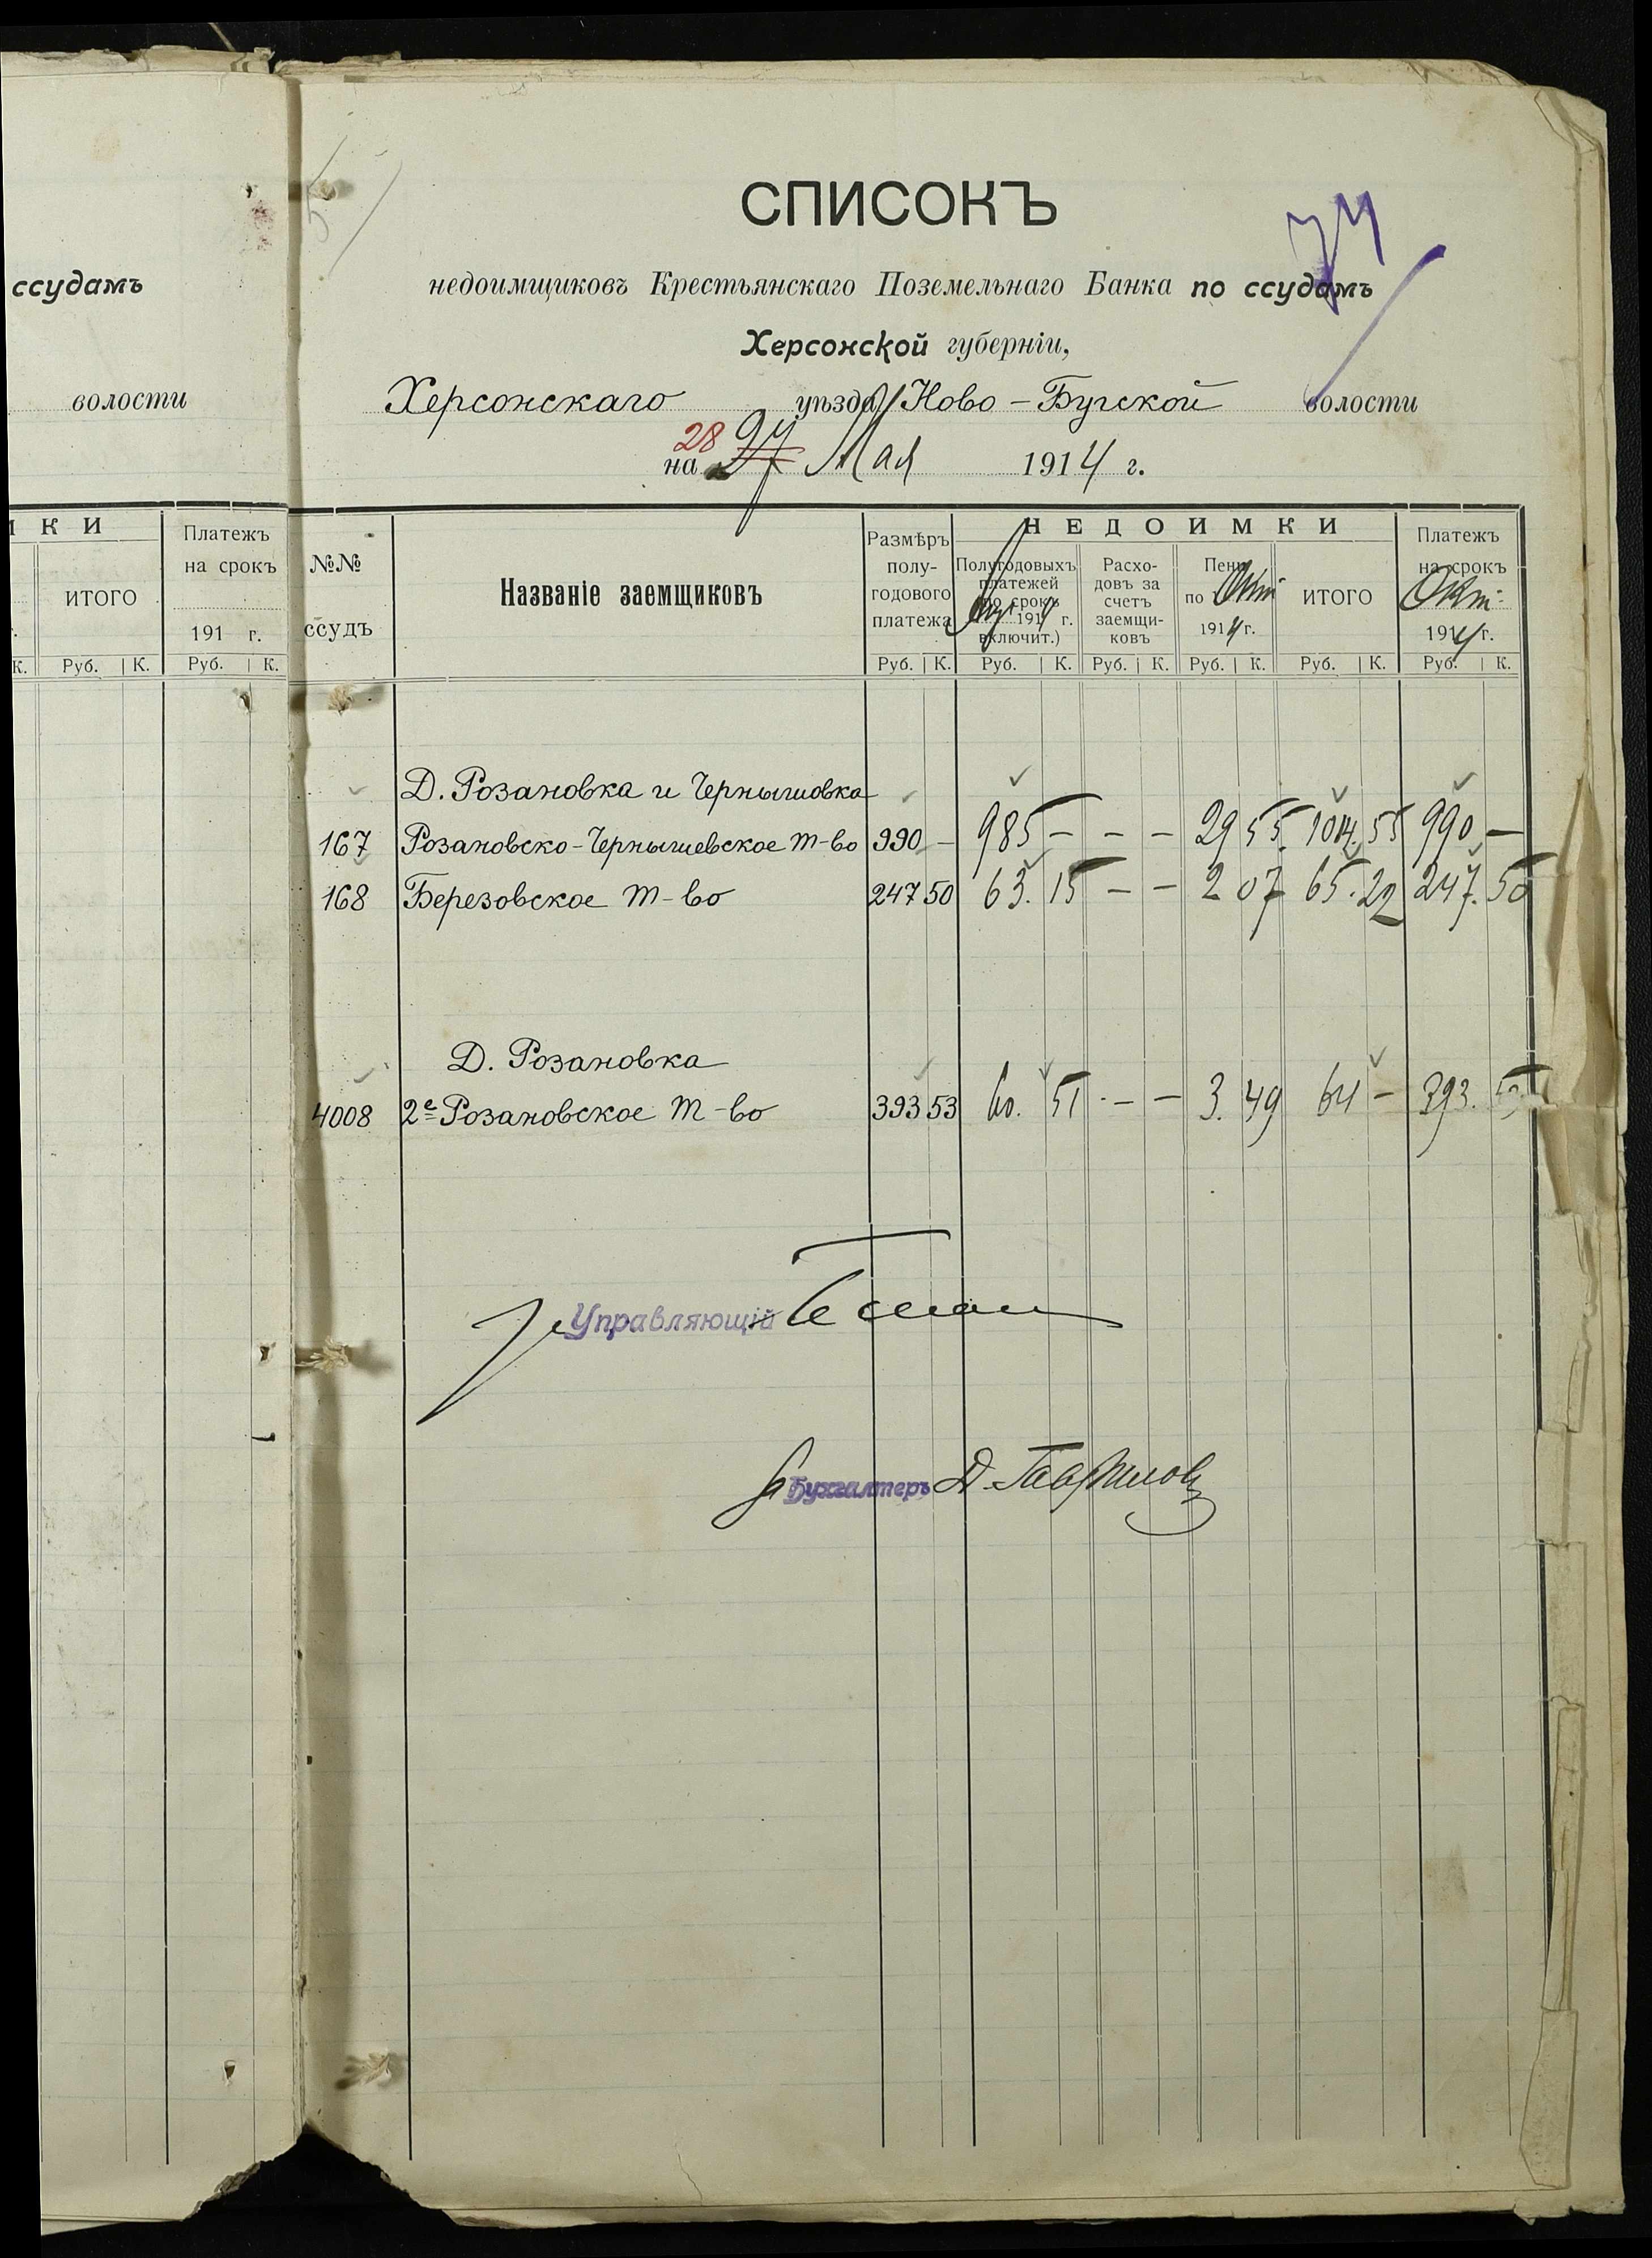 ссудамъ
волости
К И
ИТОГО
Платежъ
на срокъ
191 г.
К. Руб. К. Руб. К.
74
СПИСОКЪ
недоимщиковъ Крестьянскаго Поземельнаго Банка по ссудамъ
Херсонской губерніи,
Херсонскаго уѣзда, Ново-Бугской волости
28
на 27 Мая 1914 г.
№№
ссудъ
Названіе заемщиковъ
Размѣръ
полу-
годового
платежа
НЕДОИМКИ
Полугодовыхъ
платежей
(по срокъ
1914 г.
включит.)
Расхо-
довъ за
счетъ
заемщи-
ковъ
Пени
по Окт
1914 г.
ИТОГО
Платежъ
на срокъ
Окт.
1914 г.
Руб. К. Руб. К. Руб. К. Руб. К. Руб. К. Руб. К.
Д. Розановка и Чернышовка
167 Розановско-Чернышевское т-во 990 - 985 - - - 29 55 1014 55 990 -
168 Березовское т-во 247 50 63. 15 - - 2 07 65. 22 247. 50
Д. Розановка
4008 2е Розановское т-во 393 53 60. 51 - - 3. 49 64 - 393. 53
Управляющій
Бухгалтеръ Д. Гаврилов